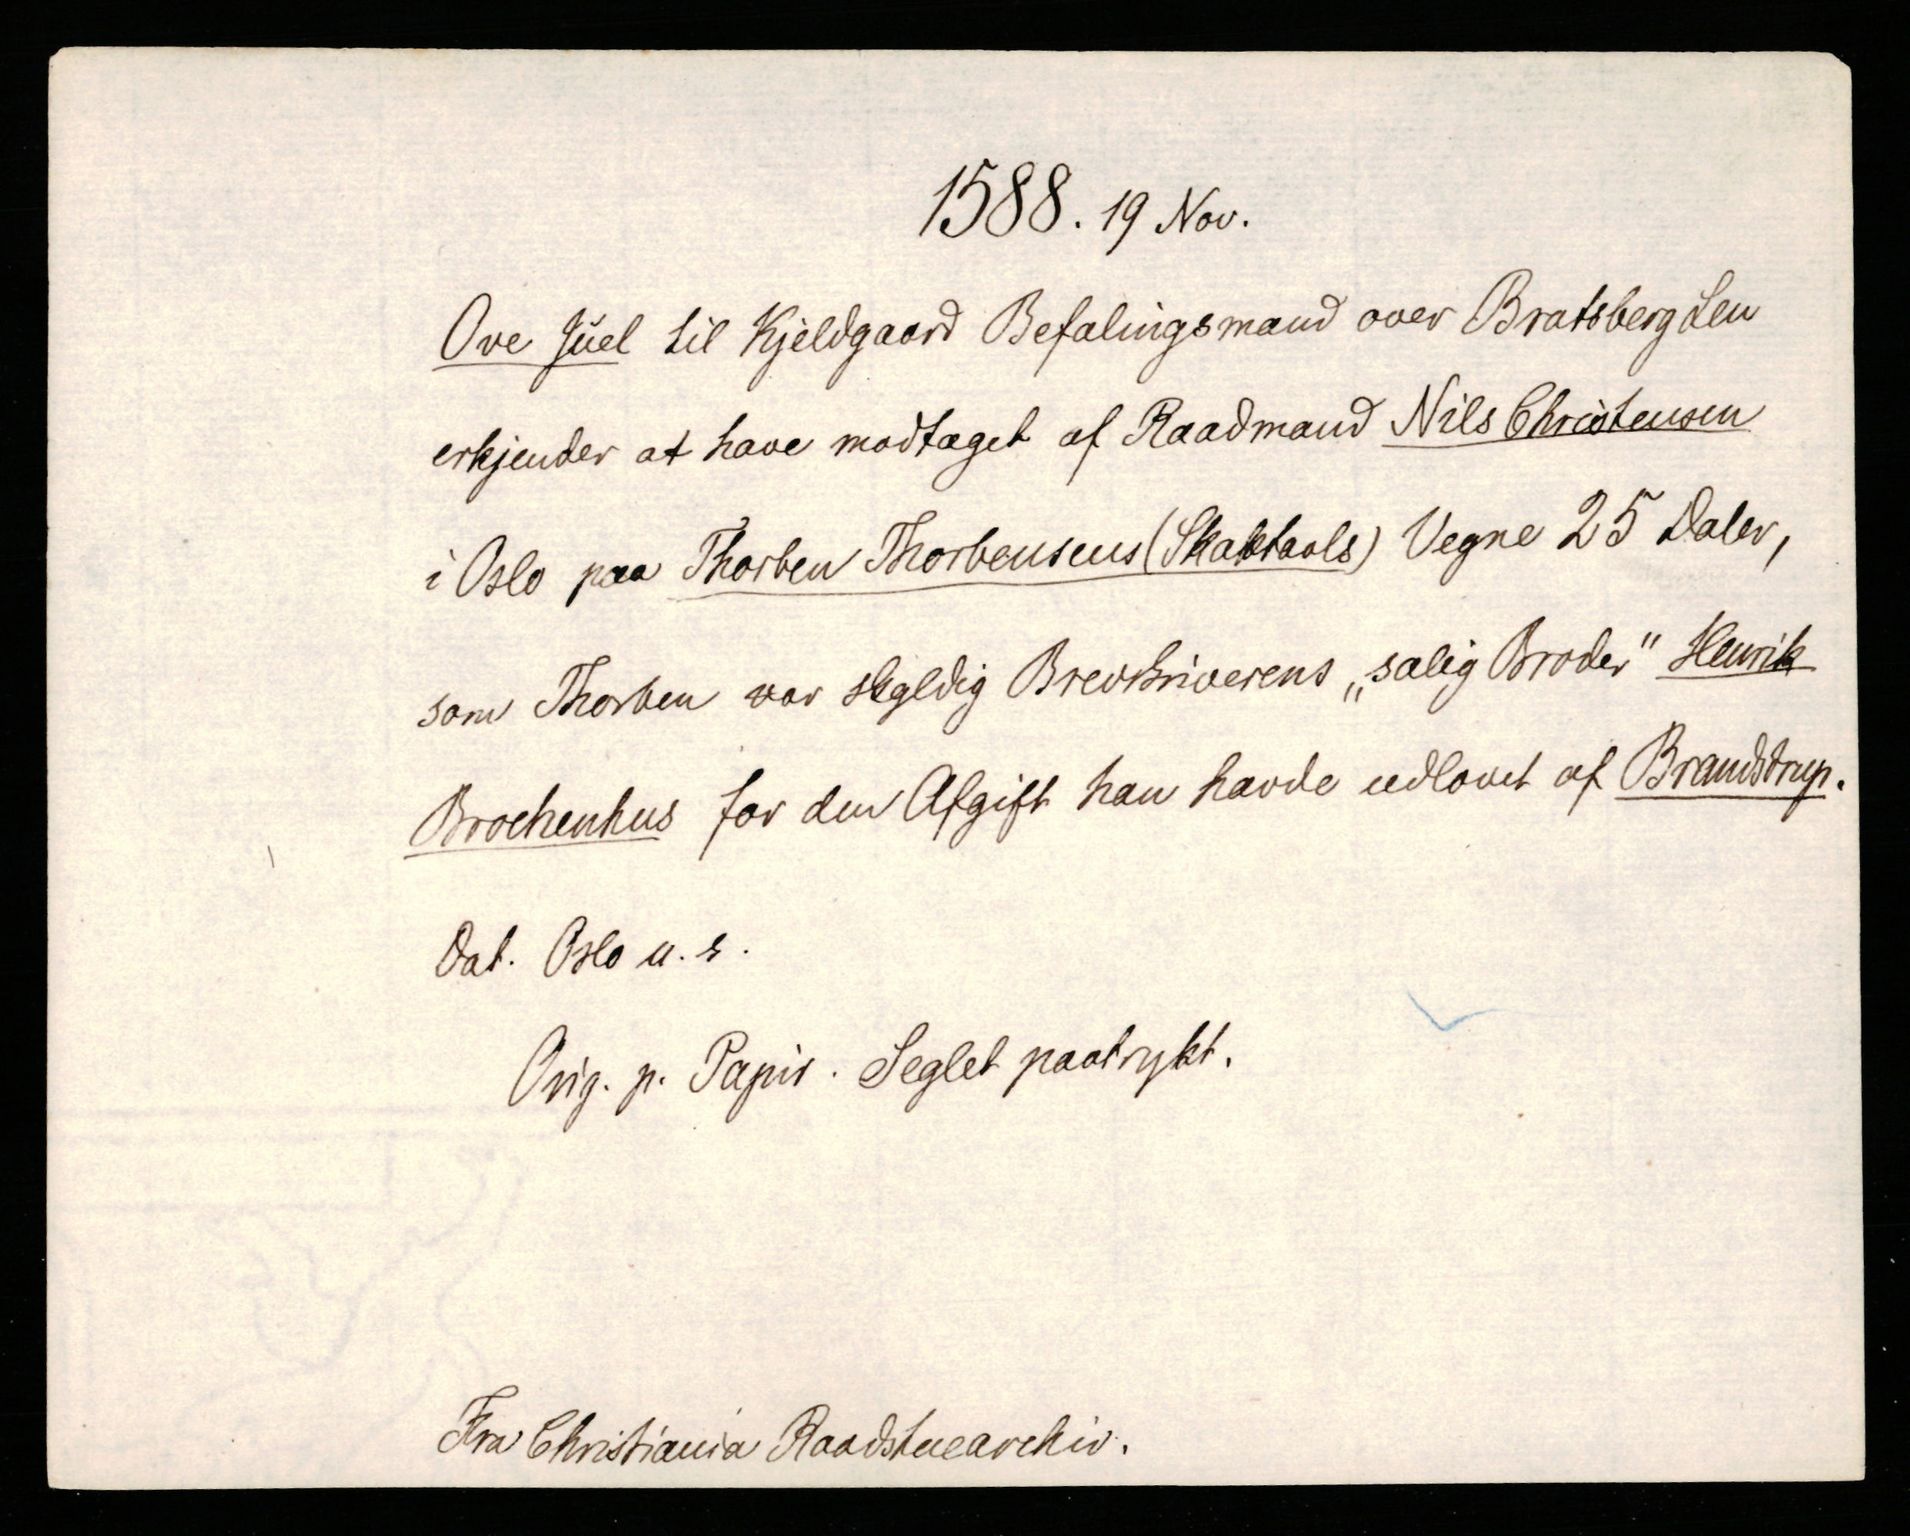 1588. 19 Nov.
Ove Juel til Kjeldgaard Befalingsmand over Bratsberg Len
erkjender at have modtaget af Raadmand Nils Christensen
i Oslo paa Thorben Thorbensens (Skaktaols) Vegne 25 Daler,
som Thorben var skyldig Brevskriverens „salig Broder" Henrik
Brochenhus for den Afgift han havde udlovet af Brandstrup.
Dat. Oslo u. s.
Orig. p. Papir. Seglet paatrykt.
Fra Christiania Raadstuearchiv.